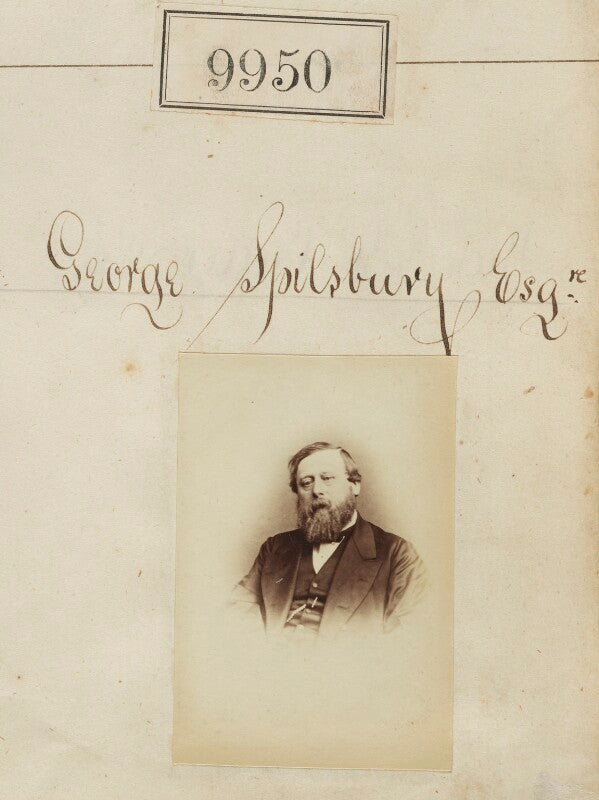 9950
George Spilsbury Esqre